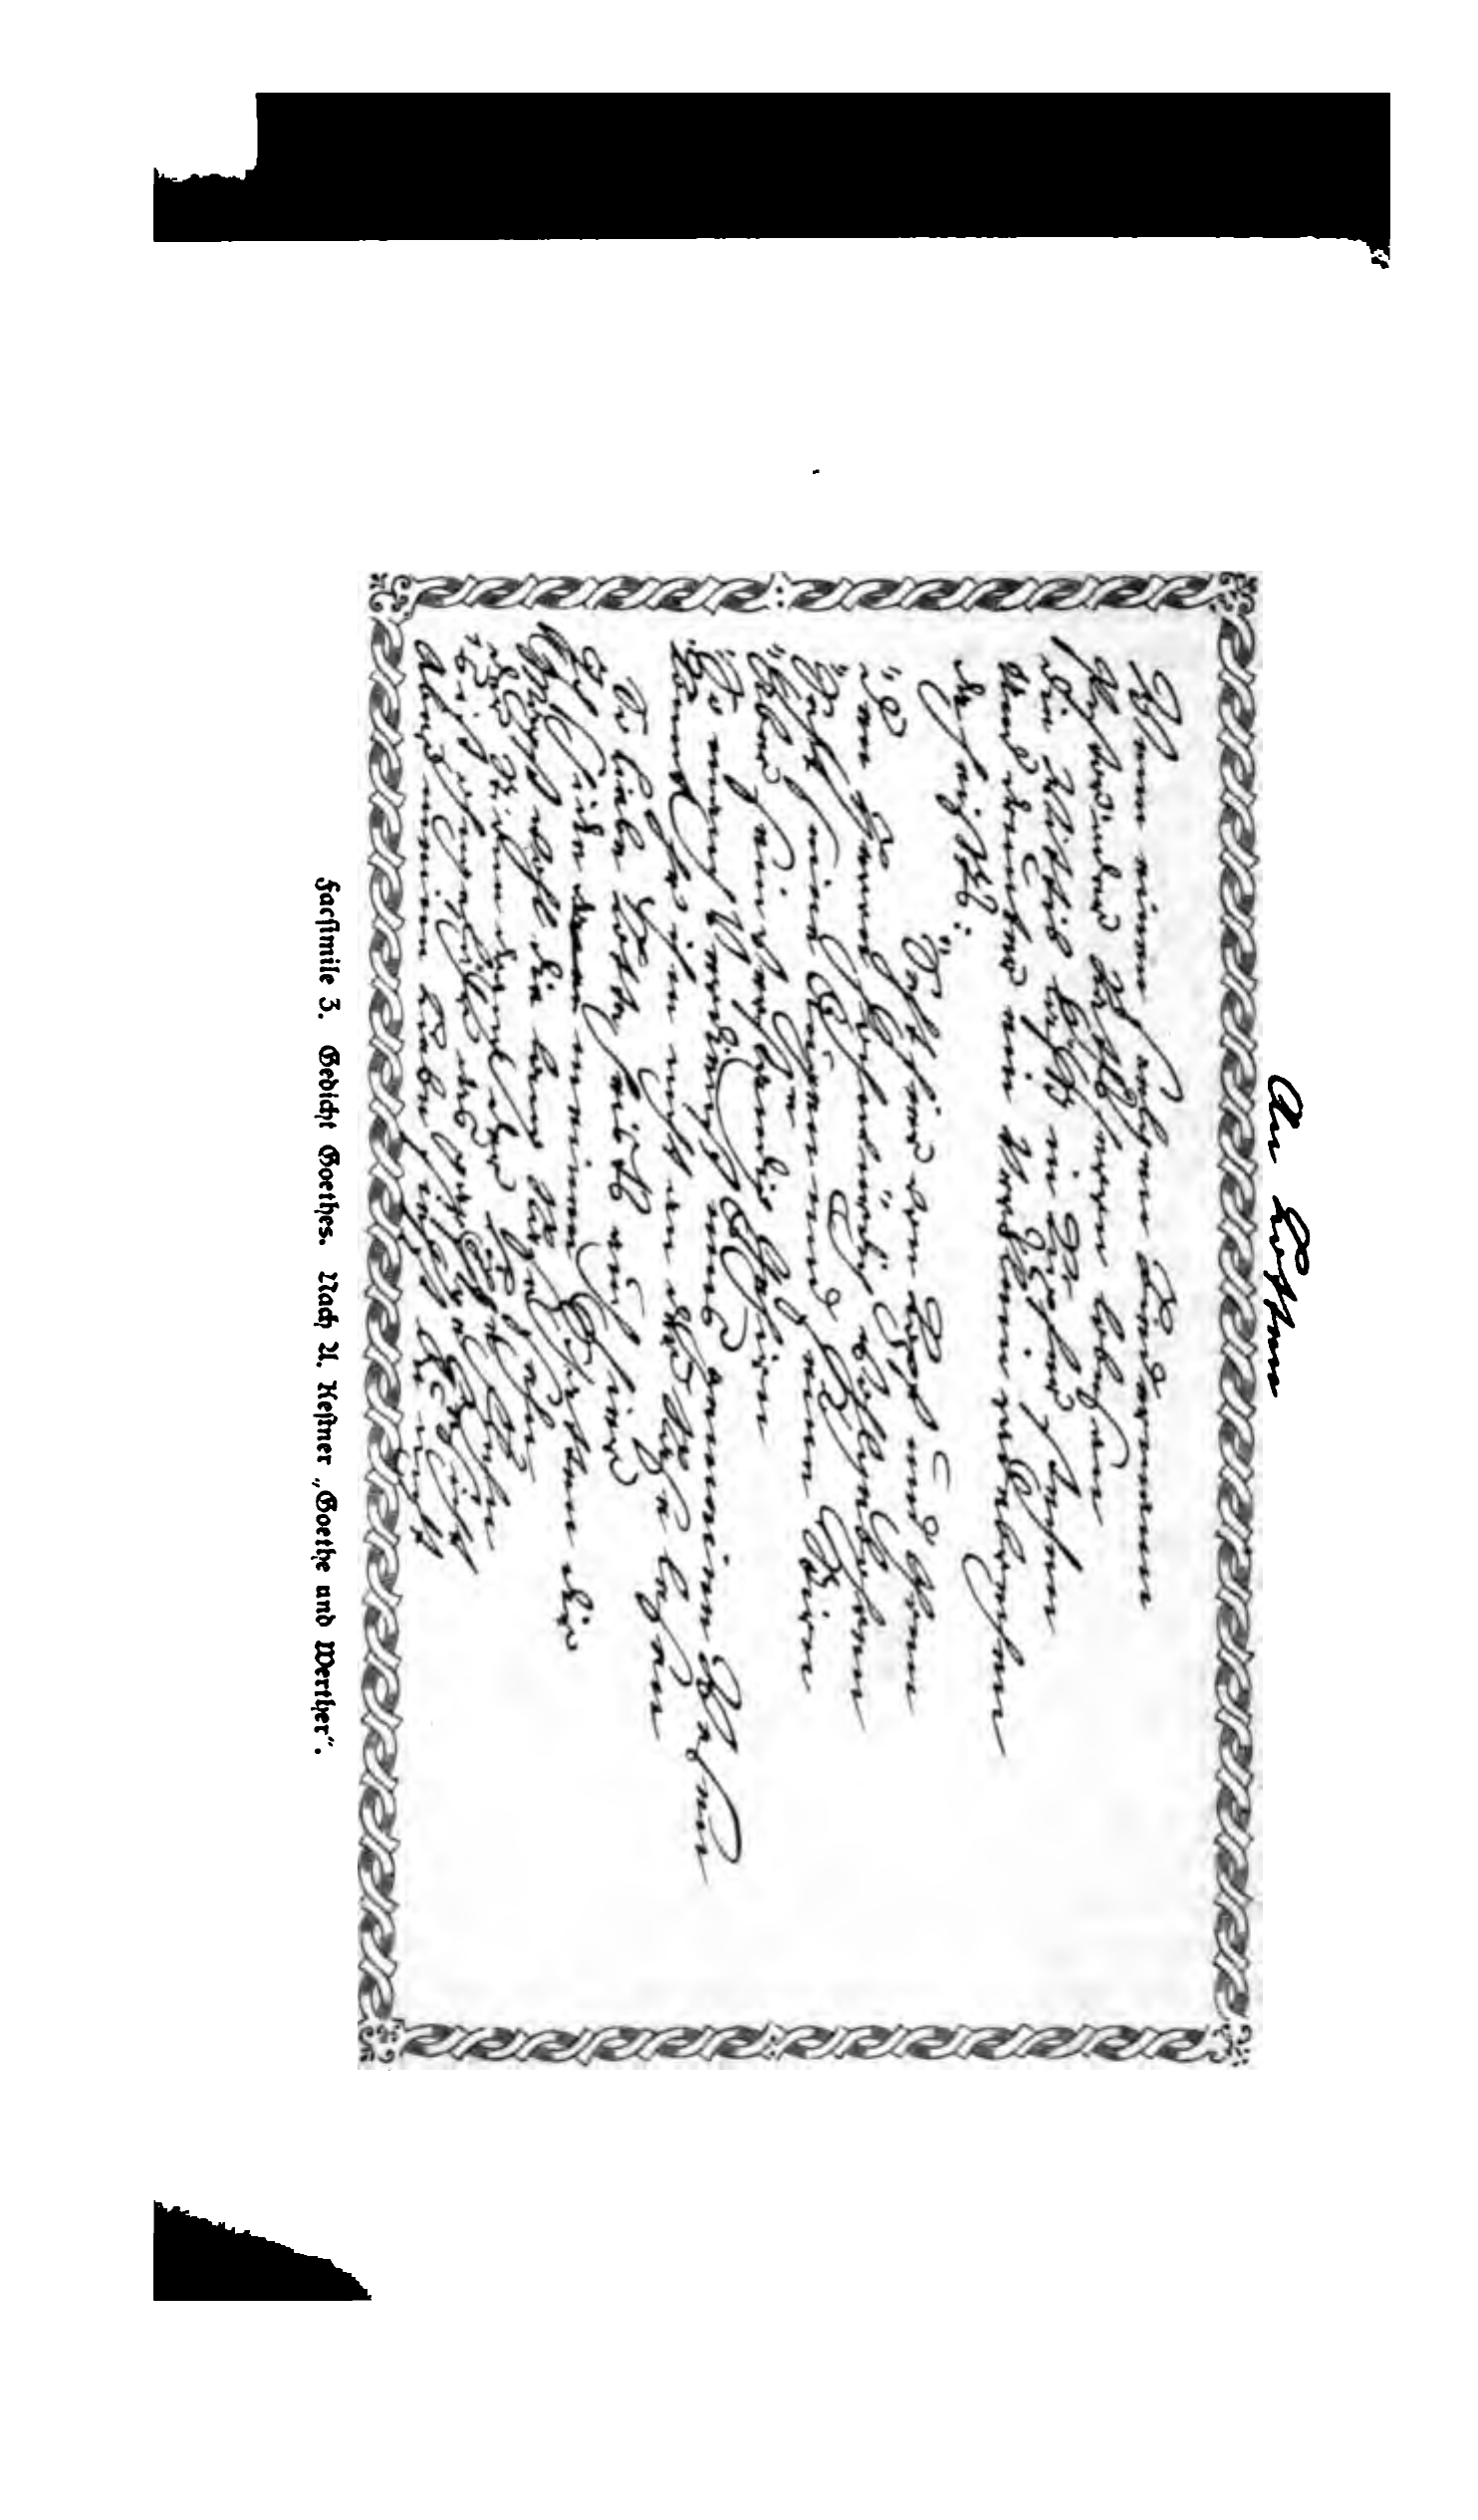 An Lotten
Wenn einen seelgen Biedermann
Pastorn oder Rathsherrn lobesan
Die Wittib läßt in Kupfer stechen
Und drunter ein Verslein radebrechen
Da heißts:
"Seht hier von Kopf und Ohren
"Den Herrn Ehrwürdig, Wohlgebohren
"Seht seine Mienen und seine Stirn
"Aber sein verständig Gehirn
"So manch Verdienst ums gemeine Wesen
"Könnt ihr ihm nicht an der Nase lesen
So liebe Lotte heists auch hier
Ich schicke meinen Schatten dir
Magst wohl die lange Nase sehn
Der Stirne Drang der Lippe Flehn
's ist ohngefähr das garstge Gesicht
Aber meine Liebe siehst du nicht
Facsimile 3. Gedicht Goethes. Nach A. Kestner „Goethe und Werther“.